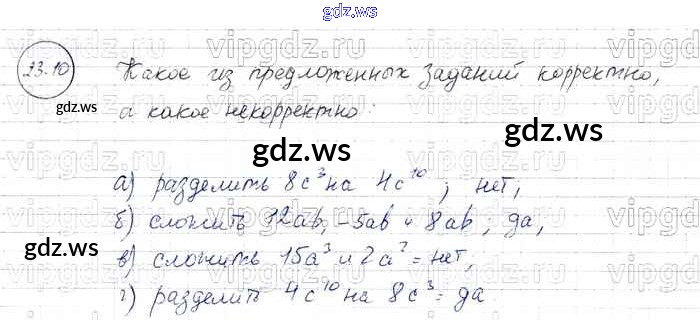 gdz.ws
23.10 Какое из предложенных заданий корректно,
а какое некорректно:
а) разделить 8c³ на 4c¹⁰; нет,
б) сложить 12ab, -5ab и 8ab, да,
в) сложить 15a³ и 2a² = нет,
г) разделить 4c¹⁰ на 8c³ = да
gdz.ws
gdz.ws
gdz.ws
gdz.ws
gdz.ws
vipgdz